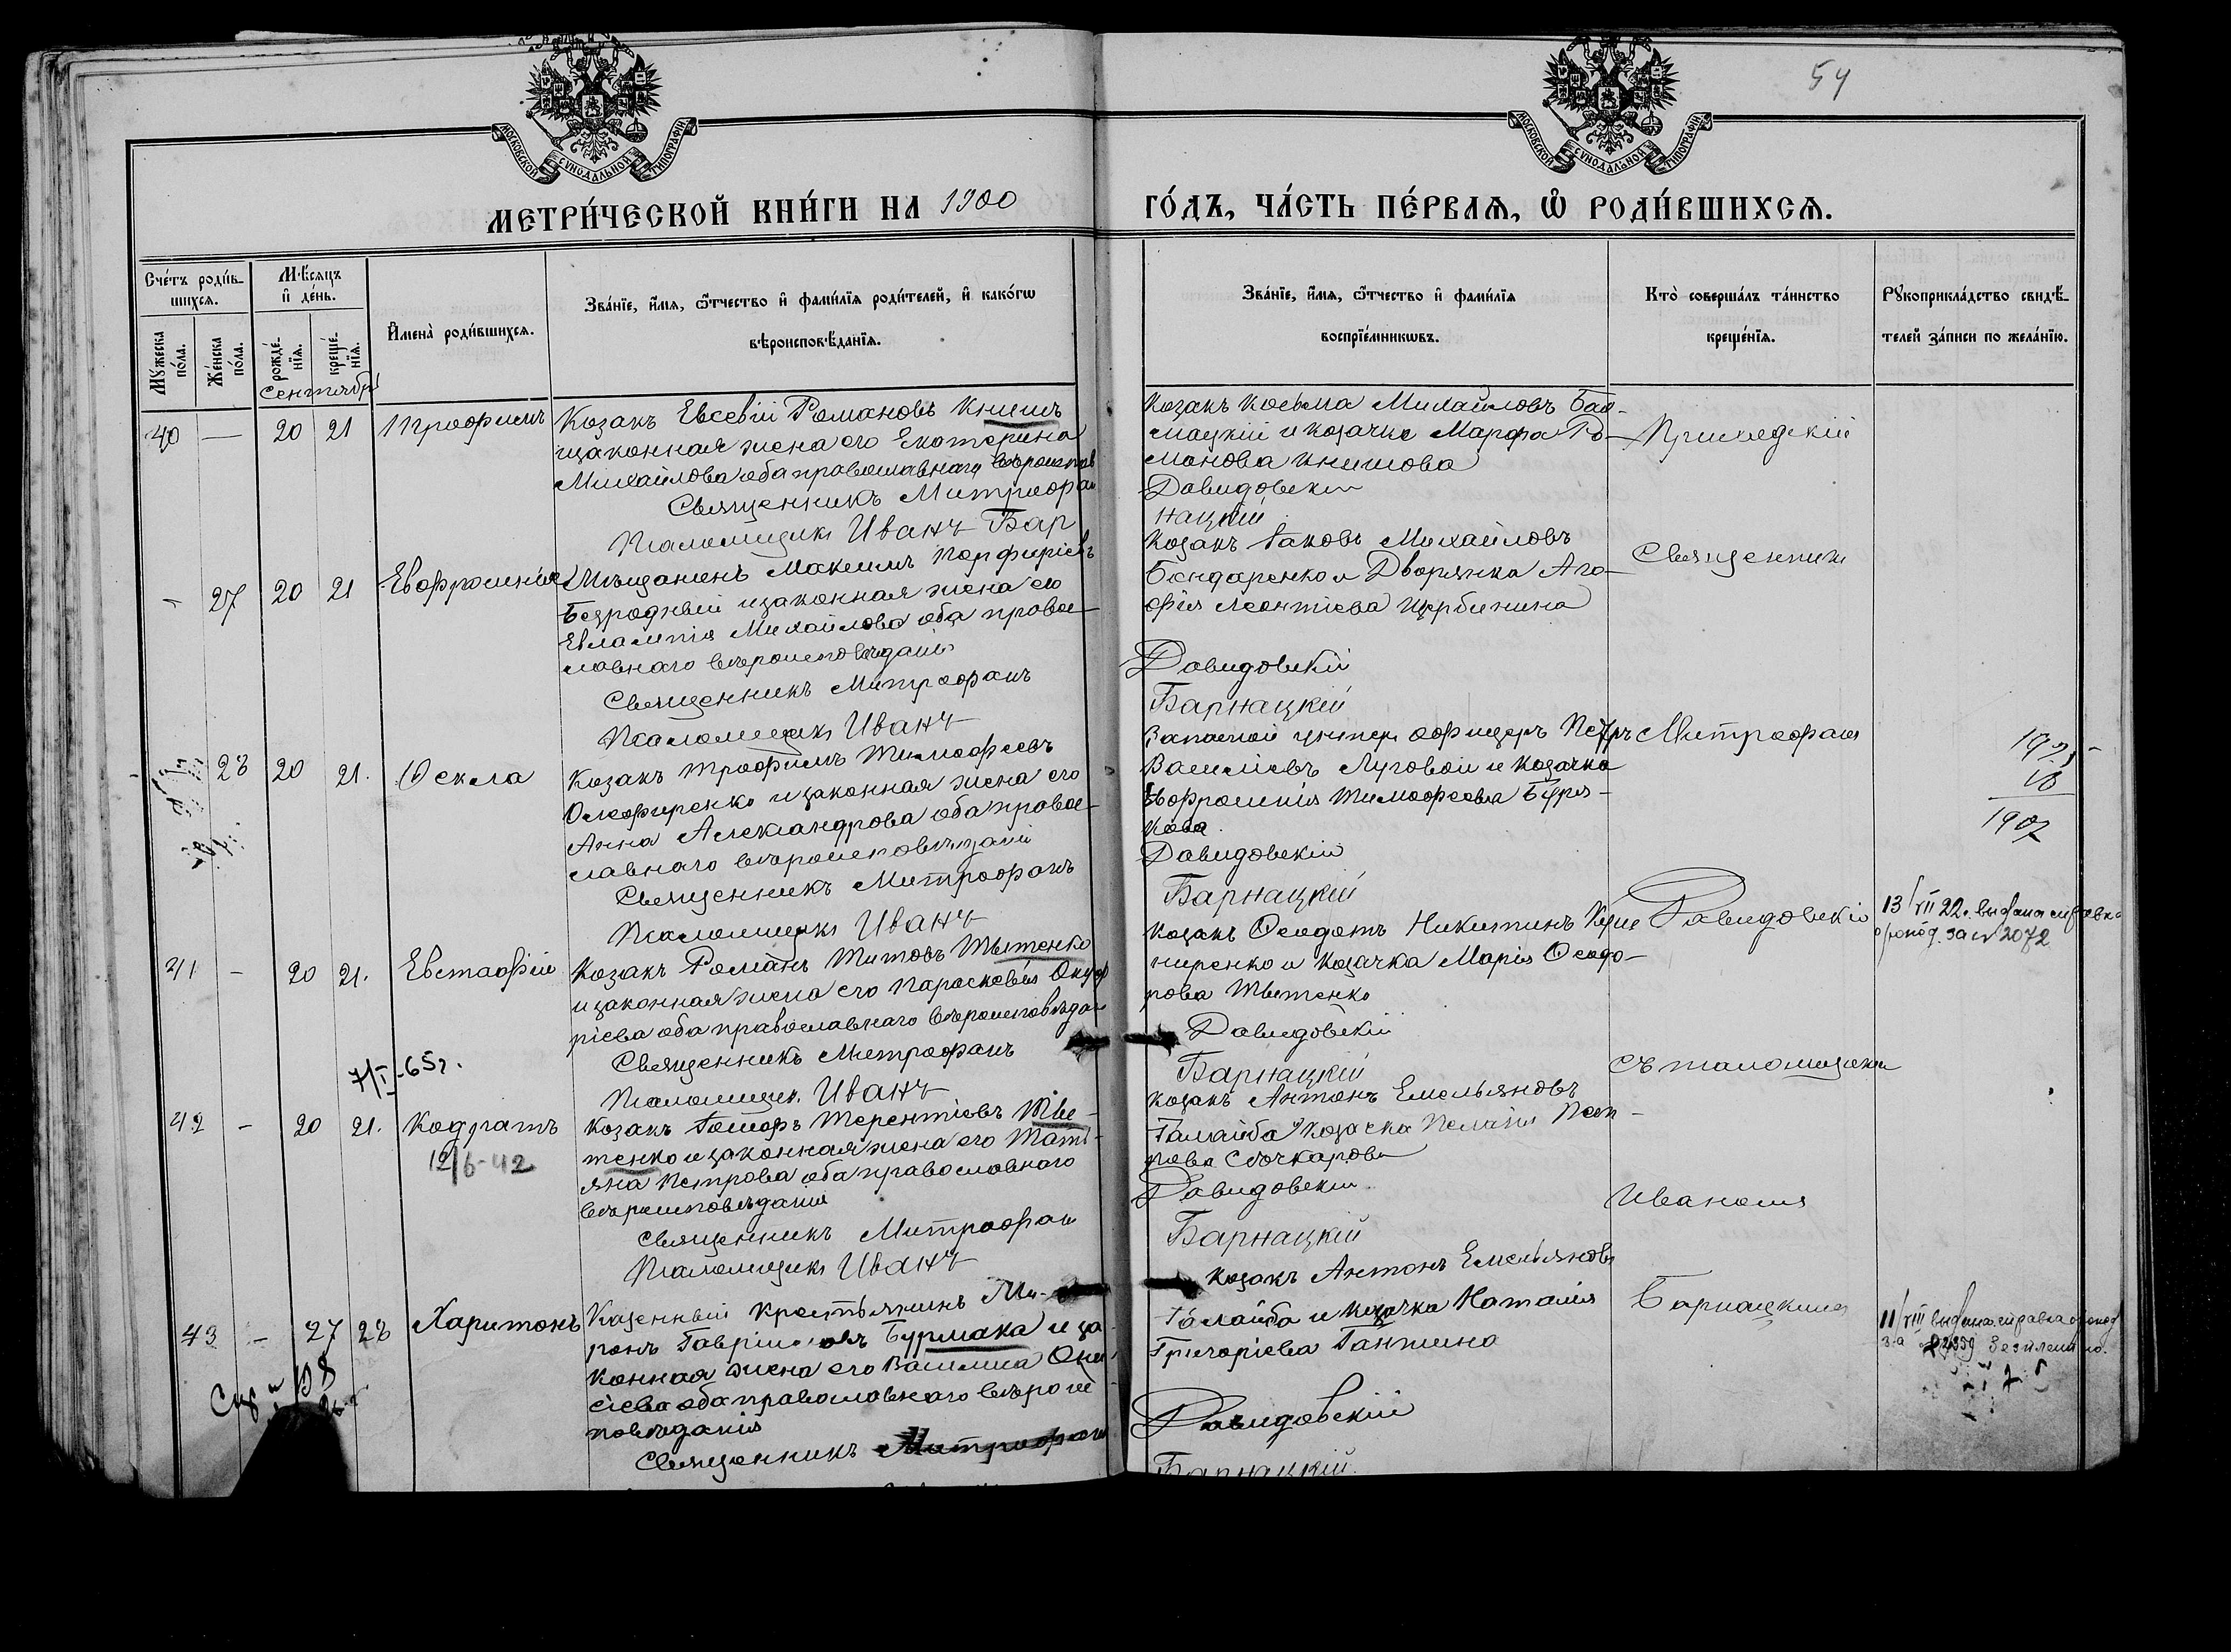 54
МОСКОВСКОЙ СУНОДАЛЬНОЙ ТИПОГРАФІИ
МОСКОВСКОЙ СУНОДАЛЬНОЙ ТИПОГРАФІИ
МЕТРИ́ЧЕСКОЙ КНИ́ГИ НА 1900
ГО́ДЪ, ЧА́СТЬ ПЕ́РВАѦ, Ѡ҆ РОДИ́ВШИХСѦ.
Сче́тъ роди́в-
шихсѧ.
Мꙋ́жеска по́ла.
Же́нска по́ла.
Мѣ́сѧцъ
и҆ де́нь.
рожде́-
нїѧ.
креще́-
нїѧ.
Сентябрь
И҆мена̀ роди́вшихсѧ.
Зва́нїе, и҆́мѧ, ѻ҆́тчество и҆ фами́лїѧ роди́телей, и҆ како́гѡ
вѣроисповѣ́данїѧ.
Зва́нїе, и҆́мѧ, ѻ҆́тчество и҆ фами́лїѧ
воспрїе́мникѡвъ.
Кто̀ соверша́лъ та́инство
креще́нїѧ.
Рꙋкоприкла́дство свидѣ́-
телей за́писи по жела́нїю.
40 — 20 21 Трофимъ
Козакъ Евсевій Романовъ Книшъ
изаконная жена его Екатерина
Михайлова оба православнаго вѣроиспов
Священникъ Митрофан
Псаломщикъ Иванъ Бар
Козакъ Косьма Михайловъ
и козачка Марфа Ро-
манова Книшова
Давидовскій
нацкій
Приходскій
- 27 20 21 Евфросинія
Мѣщанинъ Максимъ Порфиріевъ
Безродный изаконная жена его
Евлампія Михайлова оба право-
славнаго вѣроисповѣданія
Священникъ Митрофанъ
Псаломщикъ Иванъ
Козакъ Іаковъ Михайловъ
Бондаренко и Дворянка Ага-
фія Леонтіева Щербинина
Давидовскій
Барнацкій
Священник
28 20 21. Ѳекла
Козакъ Трофимъ Тимофеевъ
изаконная жена его
Анна Александрова оба право-
славнаго вѣроисповѣданія
Священникъ Митрофанъ
Псаломщикъ Иванъ
Запасной унтеръ офицеръ Петръ
Василіевъ Луговой и козачка
Евфросинія Тимофеева Буря-
кова.
Давидовскій
Барнацкій
Митрофан
18
1907
41 - 20 21. Евстафій
Козакъ Романъ Титовъ Тытенко
изаконная жена его Параскевія
ріева оба православнаго вѣроисповѣдан
Священникъ Митрофанъ
Псаломщик. Иванъ
Козакъ Ѳеодотъ Никитинъ
ниренко и козачка Марія Ѳеодо-
рова Тытенко
Давидовскій
Барнацкій
Давидовскій
13/VII 22г. выдана справка
за № 2072
7/I-65г.
42 - 20 21. Кодратъ
12/6-42
Козакъ Іосифъ Терентіевъ Ты-
тенко изаконная жена его Тать-
яна Петрова оба православнаго
вѣроисповѣданія
Священникъ Митрофан
Псаломщикъ Иванъ
Козакъ Антонъ Емельяновъ
Галайба и козачка Пелагія Пет-
рова
Давидовскій
Барнацкій
съ псаломщикомъ
Иваномъ
43 - 27 28 Харитонъ
Казенный крестьянинъ Ми-
ронъ Гавріиловъ Бурмака и за
конная жена его Василиса Они
сіева оба православнаго вѣроис
повѣданія
Священникъ Митрофан
Козакъ Антонъ Емельяновъ
Галайба и козачка Наталія
Григорієва Гантина
Давидовскій
Барнацкій
Барнацкимъ
11/VIII выдана справка
за